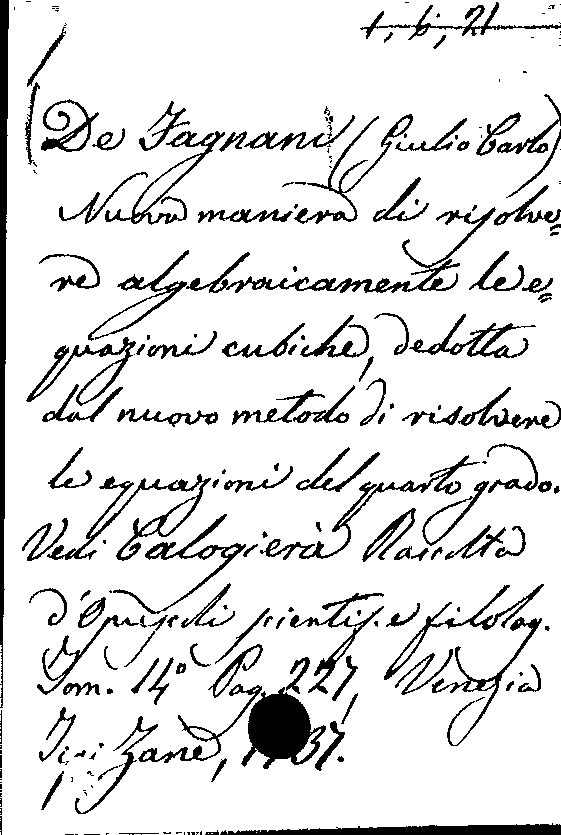 1, 6, 21
De Fagnani (Giulio Carlo)
Nuova maniera di risolve=
re algebraicamente le e=
quazioni cubiche, dedotta
dal nuovo metodo di risolvere
le equazioni del quarto grado.
Vedi Calogierà Raccolta
d'Opuscoli scientif. e filolog.
Tom. 14° Pag. 227, Venezia
Zane, 1737.